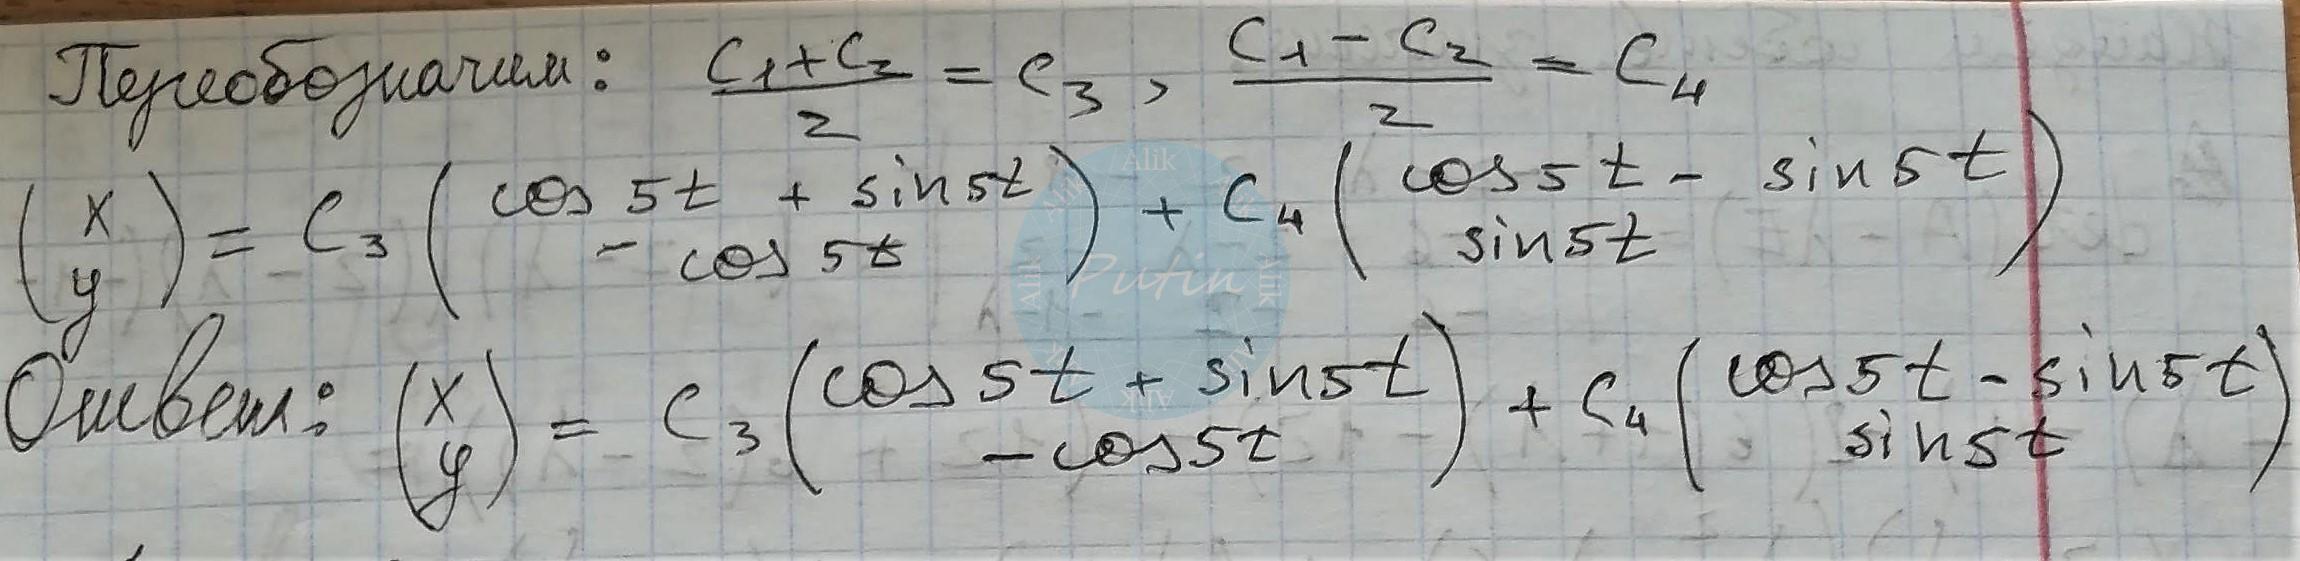 Переобозначим: (C₁+C₂)/2 = C₃, (C₁−C₂)/2 = C₄
(x y) = C₃ (cos 5t + sin 5t −cos 5t) + C₄ (cos 5t − sin 5t sin 5t)
Ответ: (x y) = C₃ (cos 5t + sin 5t −cos 5t) + C₄ (cos 5t − sin 5t sin 5t)
Alik
Putin